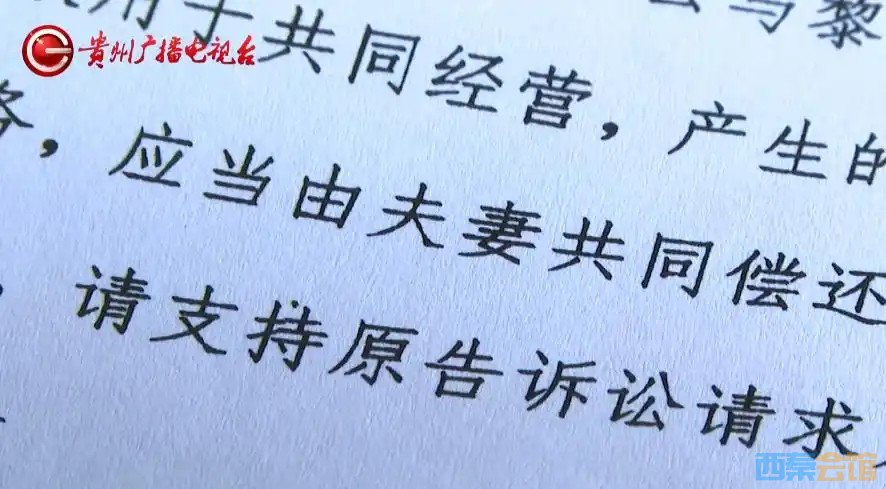 贵州广播电视台
用于共同经营，产生的
，应当由夫妻共同偿还
请支持原告诉讼请求
西秦会馆